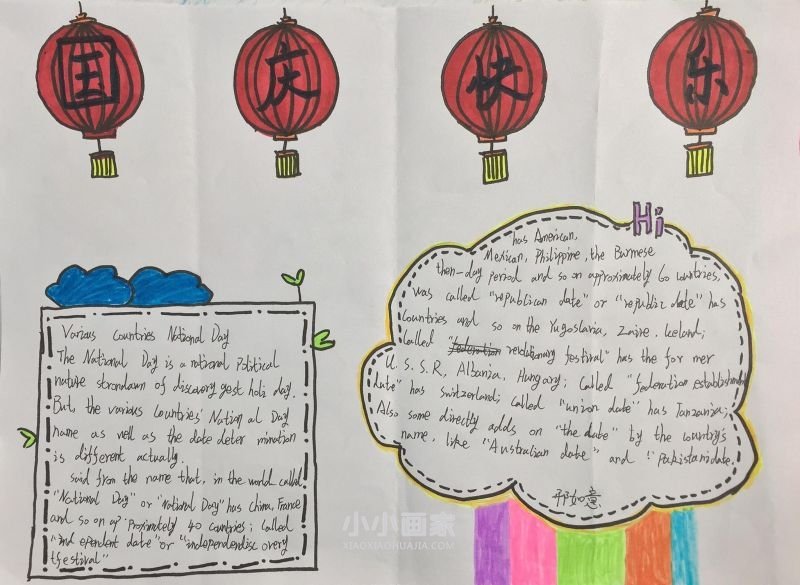 国 庆 快 乐
Various Countries National Day
The National Day is a national political
nature of discovery gest holi day.
But, the various countries' Nation al Day
name as well as the date deter mination
is different actually.
said from the name that, in the world called
"National Day" or "National Day" has China, France
and so on ap proximately 40 countries; called
"ind ependent date" or "independendisc overy
festival"
Hi
has American,
Mexican, Philippine, the Burmese
then-day period and so on approximately 60 countries,
was called "republican date" or "republic date" has
Countries and so on the Yugoslavia, Zaire, Iceland;
Called revolutionary festival" has the for mer
U.S.S.R, Albania, Hungary; called "federation establishment
date" has Switzerland; called "union date" has Tanzania;
Also some directly adds on "the date" by the country's
name, like "Australian date" and "Pakistani date.
祁如意
小小画家
XIAOXIAOHUAJIA.COM